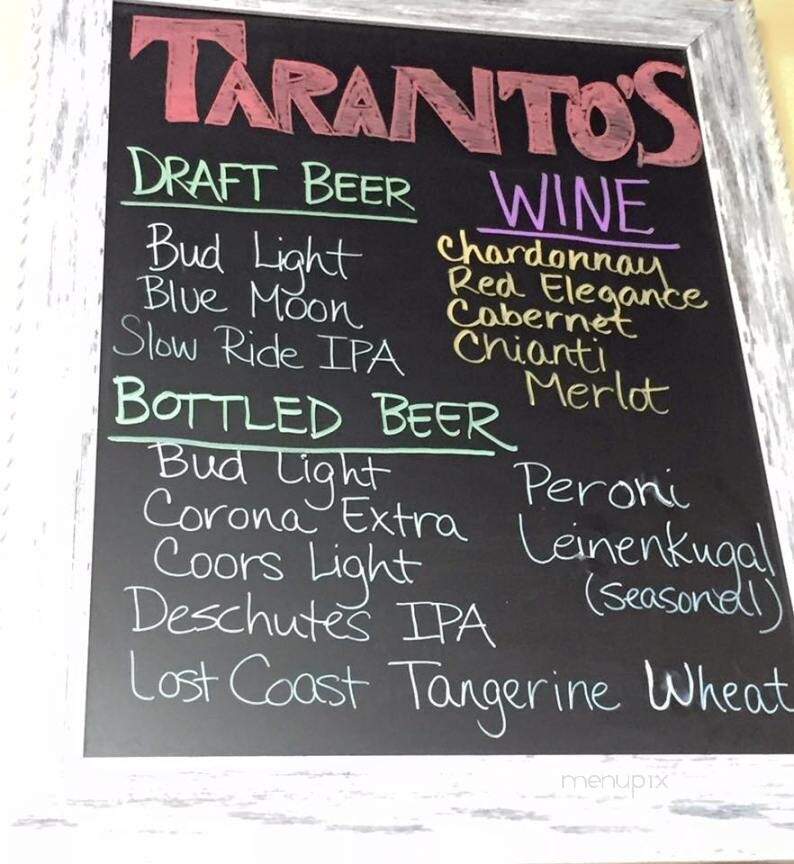 TARANTO'S
DRAFT BEER
Bud Light
Blue Moon
Slow Ride IPA
WINE
Chardonnay
Red Elegance
Cabernet
Chianti
Merlot
BOTTLED BEER
Bud Light
Corona Extra
Coors Light
Deschutes IPA
Lost Coast Tangerine Wheat
Peroni
Leinenkugal
(Seasonal)
menupix